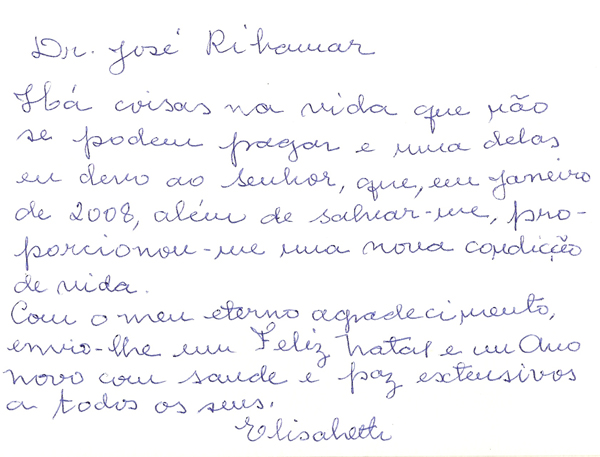 Dr. José Ribamar
Há coisas na vida que não
se podem pagar e uma delas
eu devo ao senhor, que, em Janeiro
de 2008, além de salvar-me, pro-
porcionou-me uma nova condicção
de vida.
Com o meu eterno agradecimento,
envio-lhe um Feliz Natal e um Ano
novo com saude e paz extensivos
a todos os seus.
Elisabeth